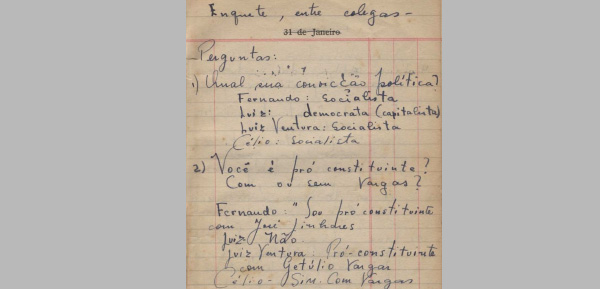 Enquete, entre colegas -
31 de Janeiro
Perguntas:
1) Qual sua convicção política?
Fernando: Socialista
Luiz: democrata (capitalista)
Luiz Ventura: Socialista
Célio: Socialista
2) Você é pró constituinte?
Com ou sem Vargas?
Fernando: "Sou pró constituinte
com José Linhares
Luiz Não
Luiz Ventura: Pró-constituinte
com Getúlio Vargas
Célio - Sim. Com Vargas